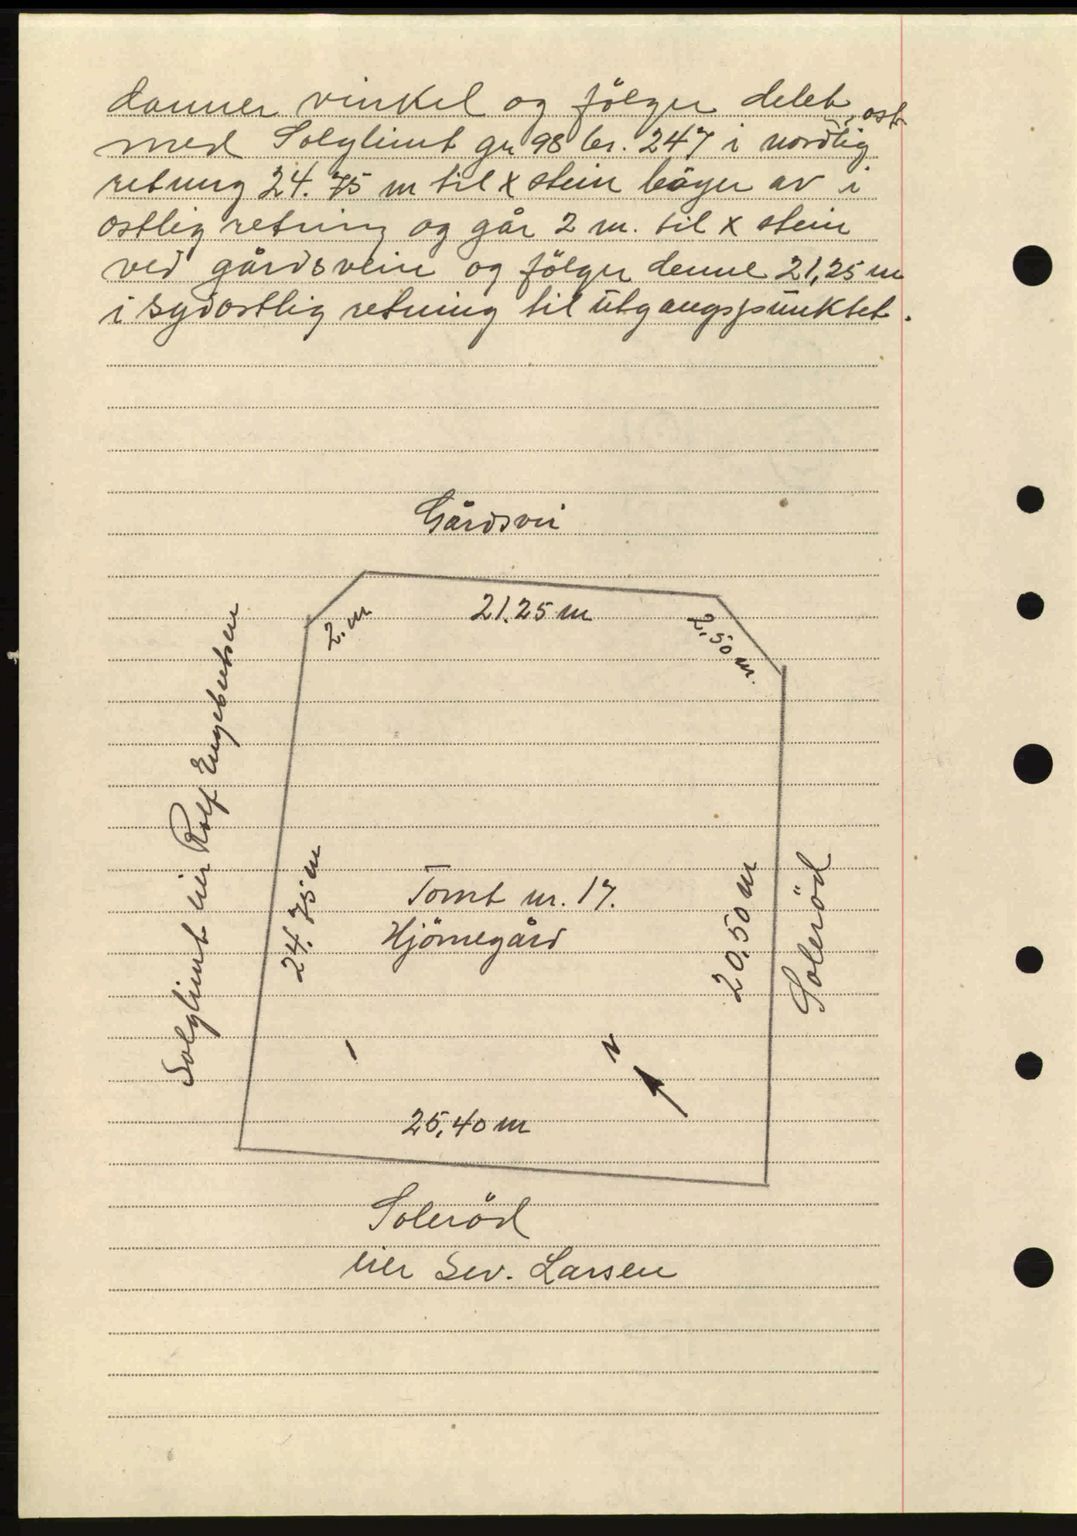 danner vinkel og fölger delet
med Solglimt gr 98 br. 247 i nordlig
ost-
retning 24.75 m til x stein böyer av i
ostlig retning og går 2 m. til x stein
ved gårdsvein og fölger denne 21,25 m
i sydostlig retning til utgangspunktet.
Gårdsvei
2. m
21.25 m
2,50 m.
Solglimt eier Rolf Engebretsen
24.75 m
Tomt nr. 17.
Hjörnegård
20,50 m
Soleröd
N
25,40 m
Soleröd
eier Sev. Larsen